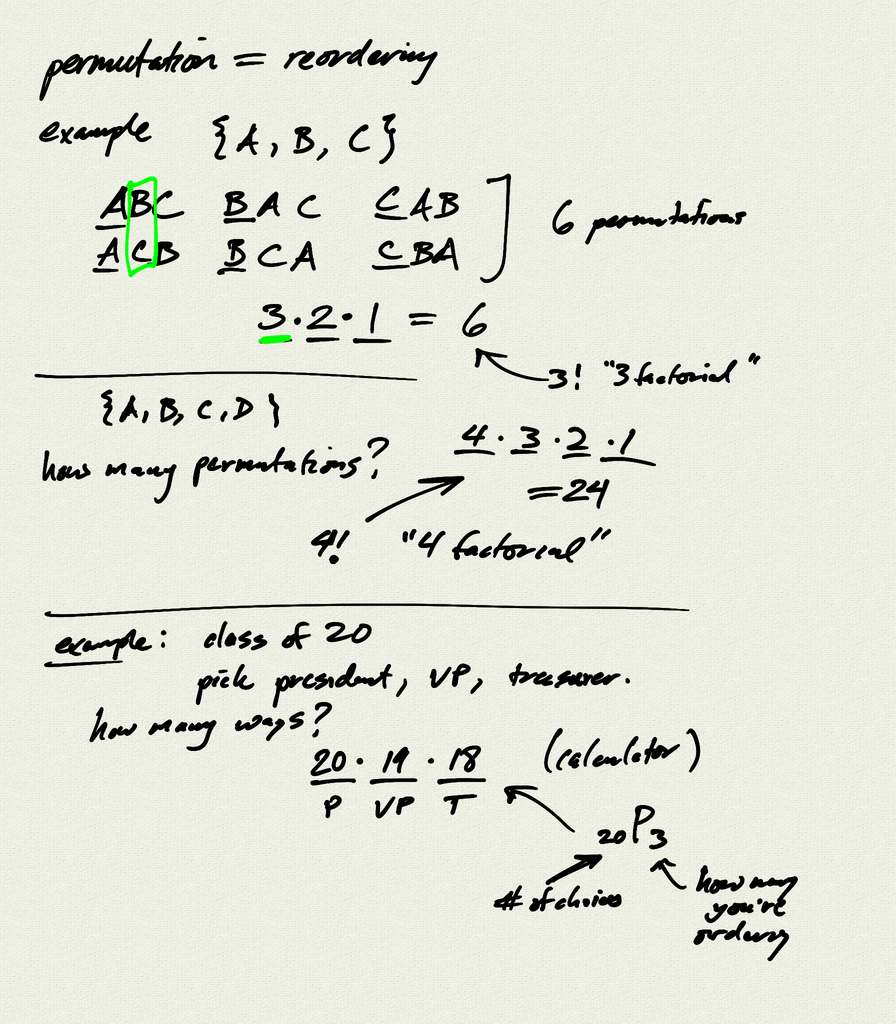 permutation = reordering
example {A, B, C}
ABC BAC CAB
ACB BCA CBA
6 permutations
3·2·1 = 6
3! "3 factorial"
{A, B, C, D}
how many permutations?
4·3·2·1
=24
4! "4 factorial"
example: class of 20
pick president, VP, treasurer.
how many ways?
20·19·18 (calculator)
P VP T
20P3
# of choices
how many
you're
ordering